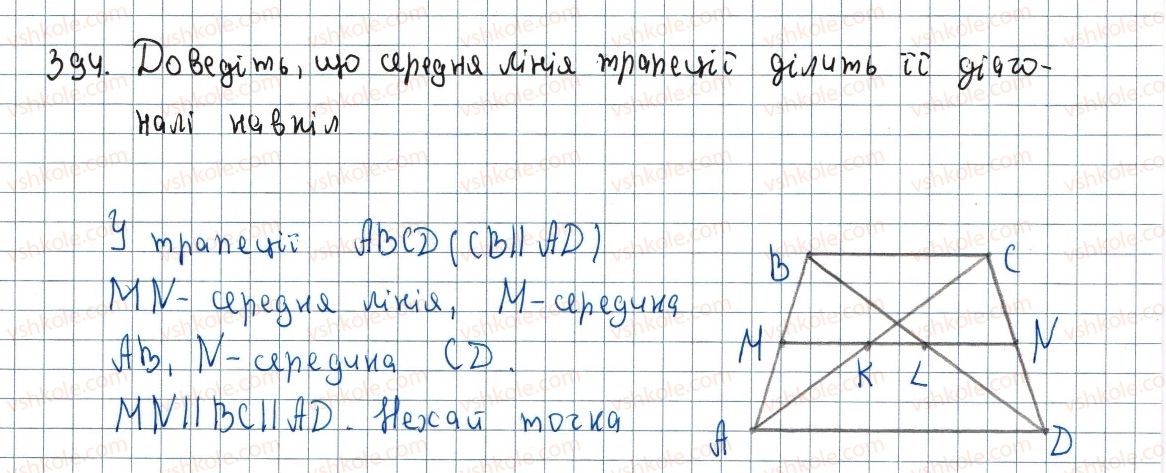 394. Доведіть, що середня лінія трапеції ділить її діаго-
налі навпіл
У трапеції ABCD (CB || AD)
MN - середня лінія, M - середина
AB, N - середина CD.
MN || BC || AD. Нехай точка
B C
M N
K L
A D